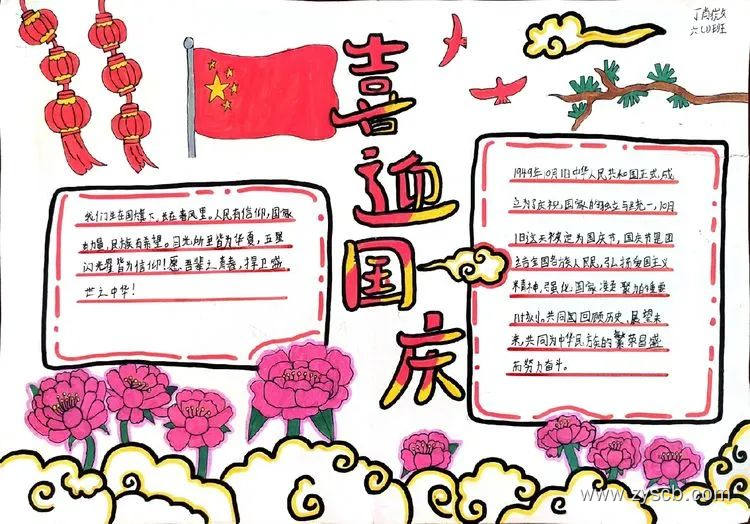 六(1)班
喜迎国庆
我们生在国旗下,长在春风里。人民有信仰,国家
有力量,民族有希望。目光所至皆为华夏,五星
闪光耀皆为信仰!愿吾辈之青春,捍卫盛
世之中华!
1949年10月1日中华人民共和国正式成
立为了庆祝,国家的独立与统一,10月
1日这天被定为国庆节,国庆节是团
结全国各族人民,弘扬爱国主义
精神,强化国家凝聚力的重要
时刻。共同回顾历史,展望未
来,共同为中华民族的繁荣昌盛
而努力奋斗。
www.zyscb.com